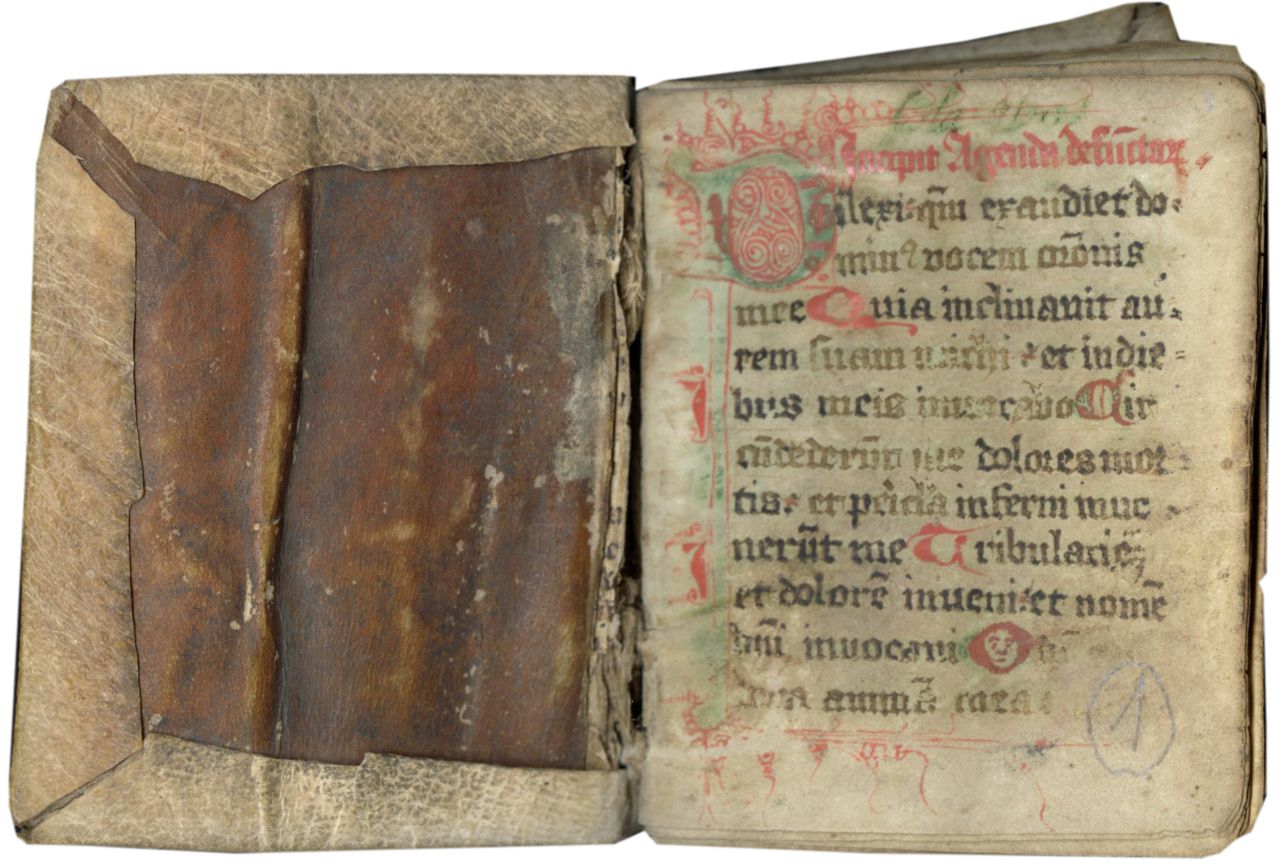 Incipit Agenda defūctaꝝ
Dilexi qm̄ exaudiet do-
minꝰ vocem orōnis
mee Quia inclinauit au-
rem suam michi et in die-
bus meis inuocabo Cir
cūdederūt me dolores mor-
tis et peric̄la inferni inue
nerūt me Tribulacionē
et dolorē inueni et nomē
dn̄i inuocaui O
animā
1